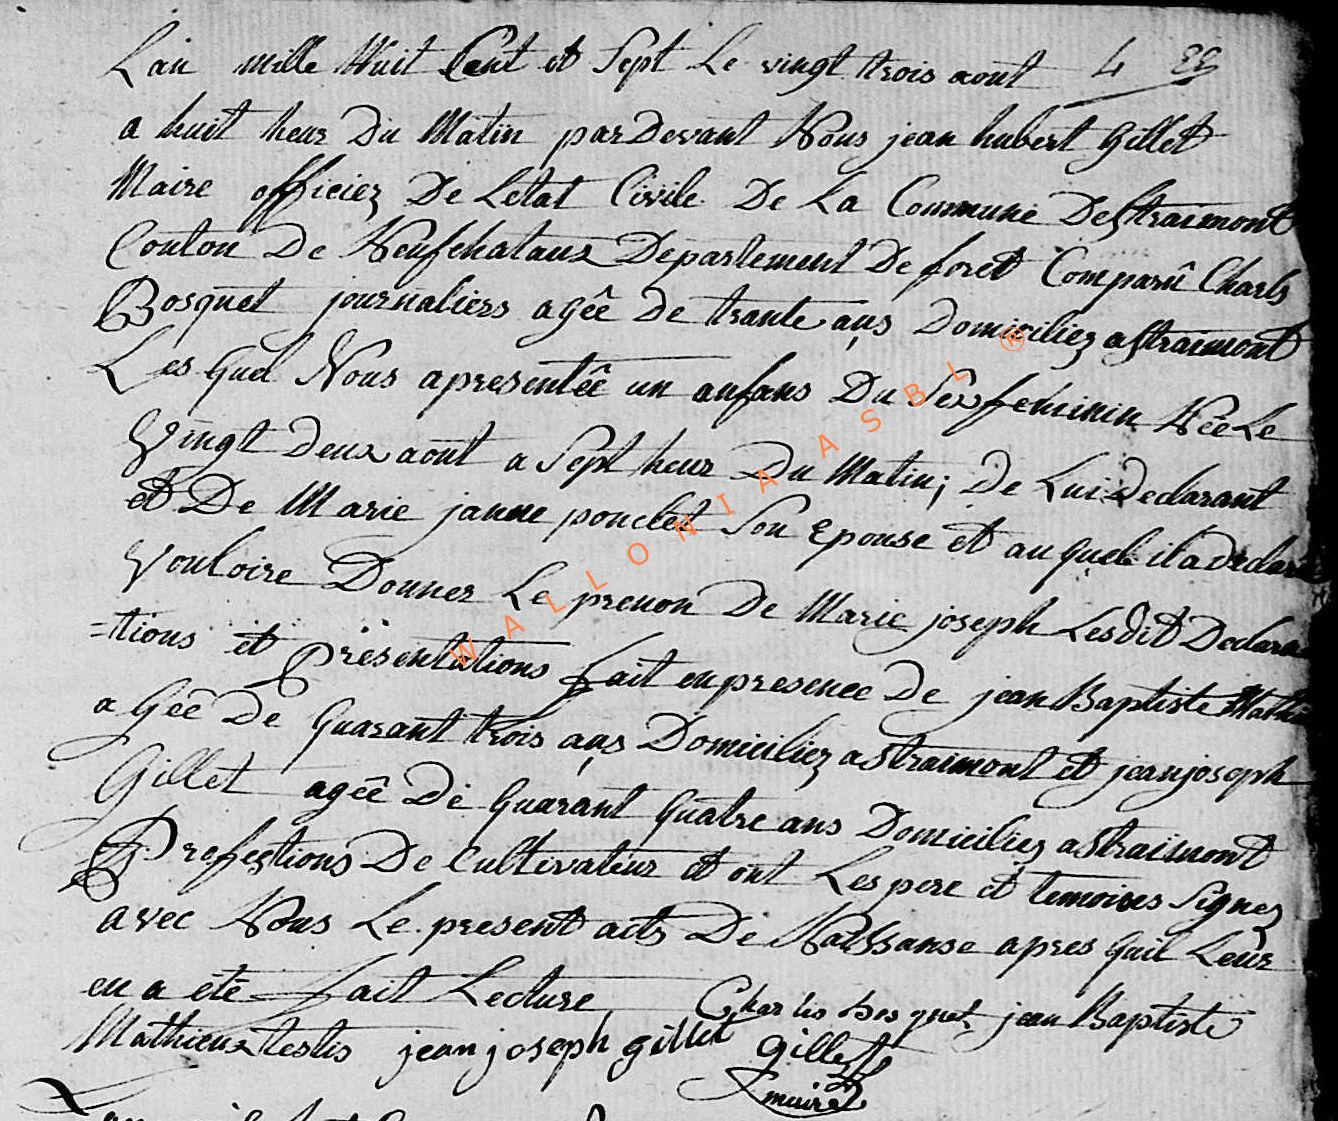 Lan mille Huit Cent et Sept Le vingt trois aout 4
a huit heur Du Matin parDevant Nous jean hubert Gillet
Maire officiez De Letat Civile De La Commune Destraimont
Conton De Neufchataux Departement De foret Comparû Charls
Bosquet journaliers agêe De trante ans Domiciliez astraimont
Les quel Nous apresentêe un anfans Du Sexs feminin Nêe Le
Vingt Deux aout a Sept heur Du Matin; De Lui Declarant
et De Marie janne ponclet Son Epouse et au quel il a Declaré
Vouloire Donner Le prenon De Marie joseph Lesdit Declara
=tions et Présentations fait enpresence De jean Baptiste Mathieu
agêe De quarant trois ans Domiciliez astraimont et jean joseph
Gillet agêe De quarant quatre ans Domiciliez astraimont
Profestions De Cultivateur et ont Les pere et temoins Signez
avec Nous Le present acts De Naissanse apres quil Leur
en a été fait Lecture Charlis bosquet jean Baptiste
Mathieux testis jean joseph gillet Gillet
maire
WALLONIA ASBL ®